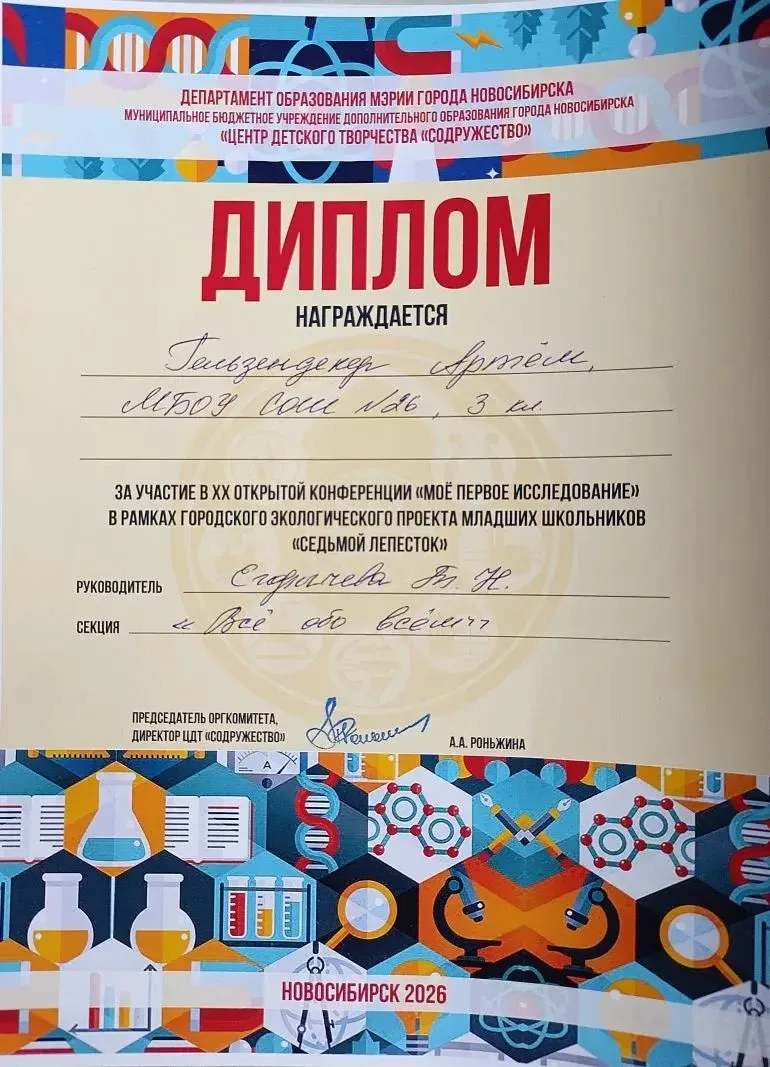 ДЕПАРТАМЕНТ ОБРАЗОВАНИЯ МЭРИИ ГОРОДА НОВОСИБИРСКА
МУНИЦИПАЛЬНОЕ БЮДЖЕТНОЕ УЧРЕЖДЕНИЕ ДОПОЛНИТЕЛЬНОГО ОБРАЗОВАНИЯ ГОРОДА НОВОСИБИРСКА
«ЦЕНТР ДЕТСКОГО ТВОРЧЕСТВА «СОДРУЖЕСТВО»
ДИПЛОМ
НАГРАЖДАЕТСЯ
Гельзендекер Артём,
МБОУ СОШ №26, 3 кл.
ЗА УЧАСТИЕ В XX ОТКРЫТОЙ КОНФЕРЕНЦИИ «МОЁ ПЕРВОЕ ИССЛЕДОВАНИЕ»
В РАМКАХ ГОРОДСКОГО ЭКОЛОГИЧЕСКОГО ПРОЕКТА МЛАДШИХ ШКОЛЬНИКОВ
«СЕДЬМОЙ ЛЕПЕСТОК»
РУКОВОДИТЕЛЬ Егорычева Т. Н.
СЕКЦИЯ «Всё обо всём»
ПРЕДСЕДАТЕЛЬ ОРГКОМИТЕТА,
ДИРЕКТОР ЦДТ «СОДРУЖЕСТВО» А.А. РОНЬЖИНА
A
НОВОСИБИРСК 2026